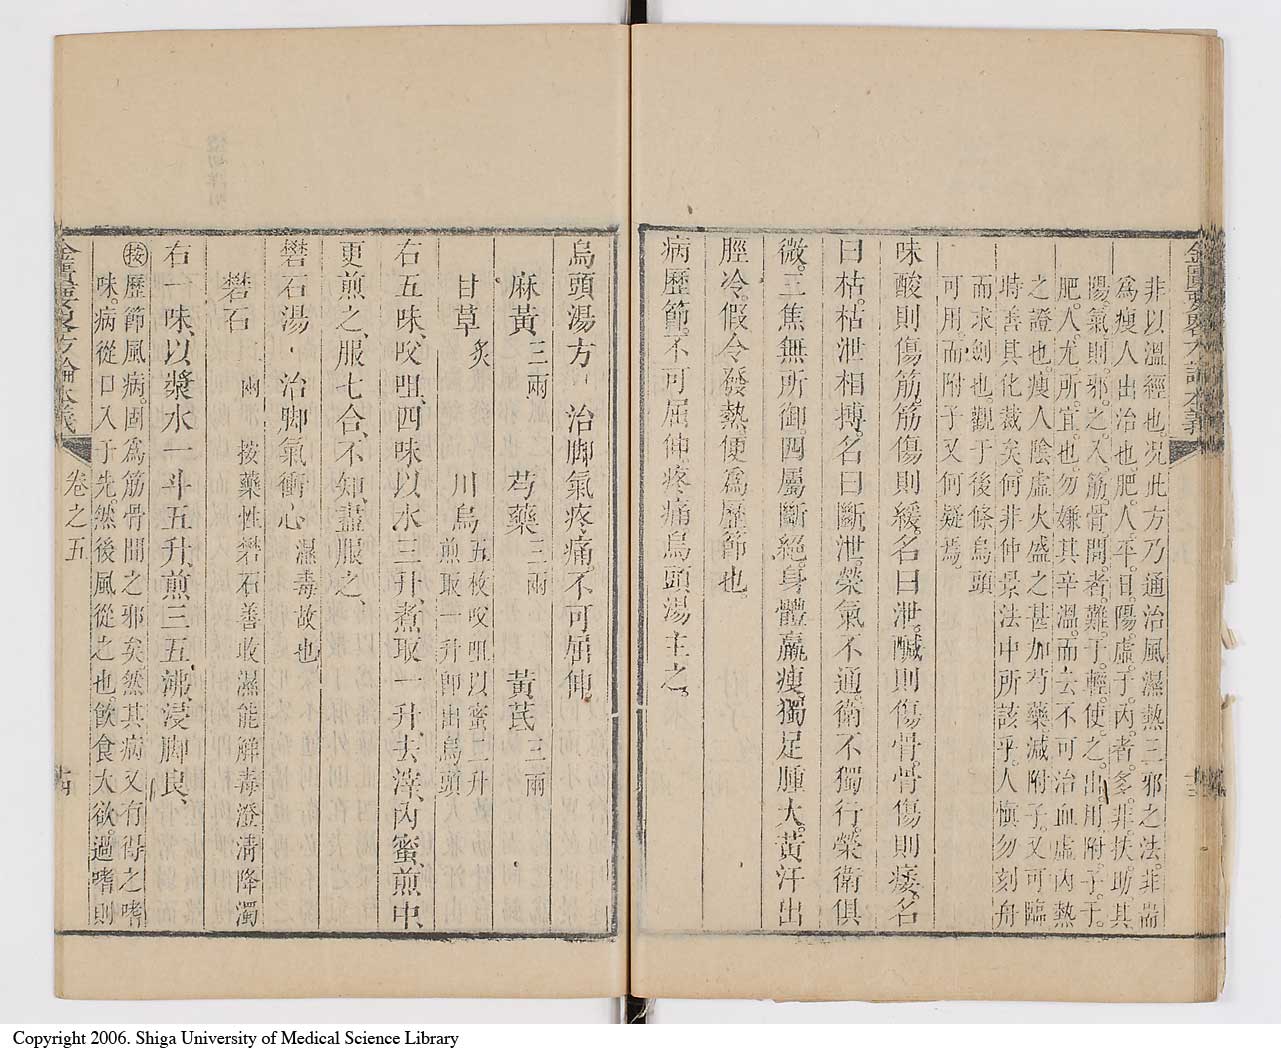 非以溫經也況此方乃通治風濕熱三邪之法非耑
為瘦人出治也肥人平日陽虛于內者多非扶助其
陽氣則邪之入筋骨間者難于輕使之出用附子于
肥人尤所宜也勿嫌其辛溫而去不可治血虛內熱
之證也瘦人陰虛火盛之甚加芍藥減附子又可臨
時善其化裁矣何非仲景法中所該乎人慎勿刻舟
而求劍也觀于後條烏頭
可用而附子又何疑焉
味酸則傷筋筋傷則緩名曰泄鹹則傷骨骨傷則痿名
曰枯枯泄相搏名曰斷泄榮氣不通衛不獨行榮衛俱
微三焦無所御四屬斷絕身體羸瘦獨足腫大黃汗出
脛冷假令發熱便為歷節也
病歷節不可屈伸疼痛烏頭湯主之
烏頭湯方 治脚氣疼痛不可屈伸
麻黃三兩 芍藥三兩 黃芪三兩
甘草炙 川烏五枚㕮咀以蜜二升
煎取一升即出烏頭
右五味㕮咀四味以水三升煮取一升去滓內蜜煎中
更煎之服七合不知盡服之
礬石湯 治脚氣衝心 濕毒故也
礬石二兩 按藥性礬石善收濕能解毒澄清降濁
右一味以漿水一斗五升煎三五沸浸脚良
按歷節風病固為筋骨間之邪矣然其病又有得之嗜
味病從口入于先然後風從之也飲食大欲過嗜則
金匱要畧方論本義
卷之五
十四